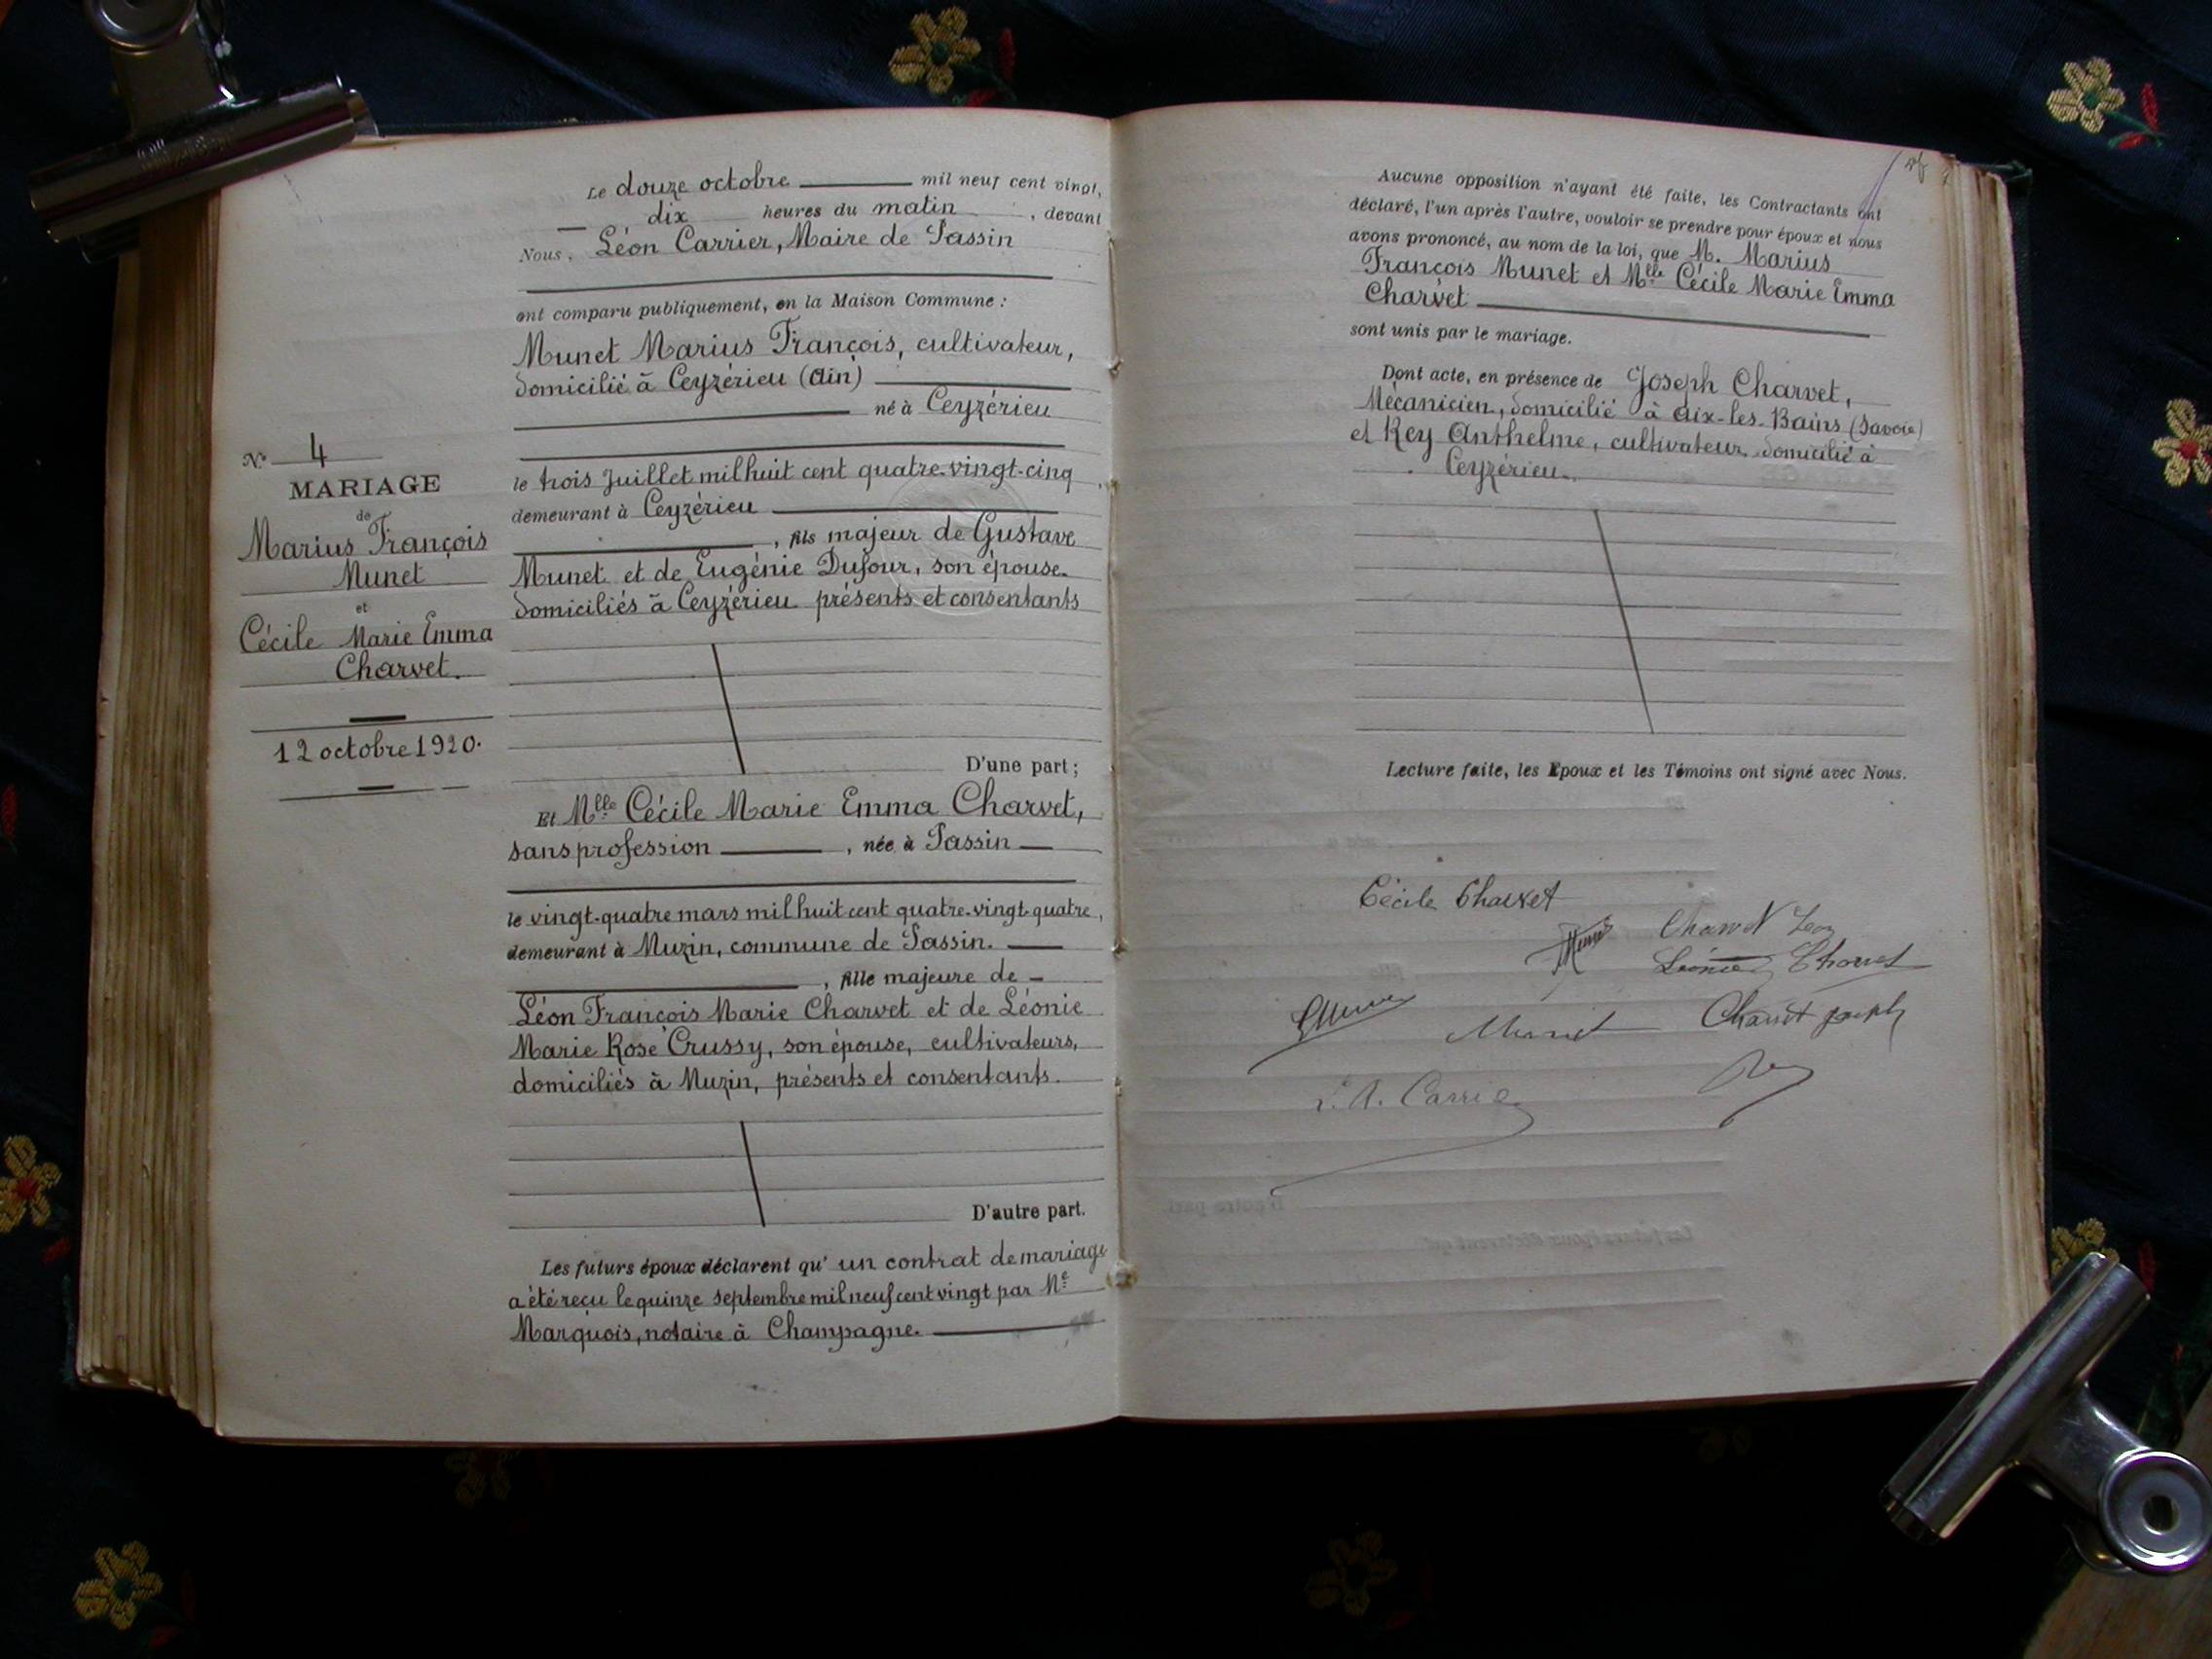 Le douze octobre mil neuf cent vingt,
dix heures du matin, devant
Nous, Léon Carrier, Maire de Passin
ont comparu publiquement, en la Maison Commune :
Munet Marius François, cultivateur,
domicilié à Ceyzérieu (Ain)
né à Ceyzérieu
le trois Juillet mil huit cent quatre-vingt-cinq,
demeurant à Ceyzérieu
, fils majeur de Gustave
Munet et de Eugénie Dufour, son épouse.
domiciliés à Ceyzérieu présents et consentants
D'une part ;
Et Mlle Cécile Marie Emma Charvet,
sans profession, née à Passin
le vingt-quatre mars mil huit cent quatre-vingt-quatre,
demeurant à Muzin, commune de Passin.
, fille majeure de
Léon François Marie Charvet et de Léonie
Marie Rose Crussy, son épouse, cultivateurs,
domiciliés à Muzin, présents et consentants.
D'autre part.
Les futurs époux déclarent qu' un contrat de mariage
a été reçu le quinze septembre mil neuf cent vingt par Me
Marquois, notaire à Champagne.
No 4
MARIAGE
de
Marius François
Munet
et
Cécile Marie Emma
Charvet.
12 octobre 1920.
Aucune opposition n'ayant été faite, les Contractants ont
déclaré, l'un après l'autre, vouloir se prendre pour époux et nous
avons prononcé, au nom de la loi, que M. Marius
François Munet et Mlle Cécile Marie Emma
Charvet
sont unis par le mariage.
Dont acte, en présence de Joseph Charvet,
Mécanicien, domicilié à Aix-les-Bains (Savoie)
et Rey Anthelme, cultivateur, domicilié à
Ceyzérieu.
Lecture faite, les Epoux et les Témoins ont signé avec Nous.
Cécile Charvet
Charvet Léon
Léonie Charvet
Munet
Charvet Joseph
Rey